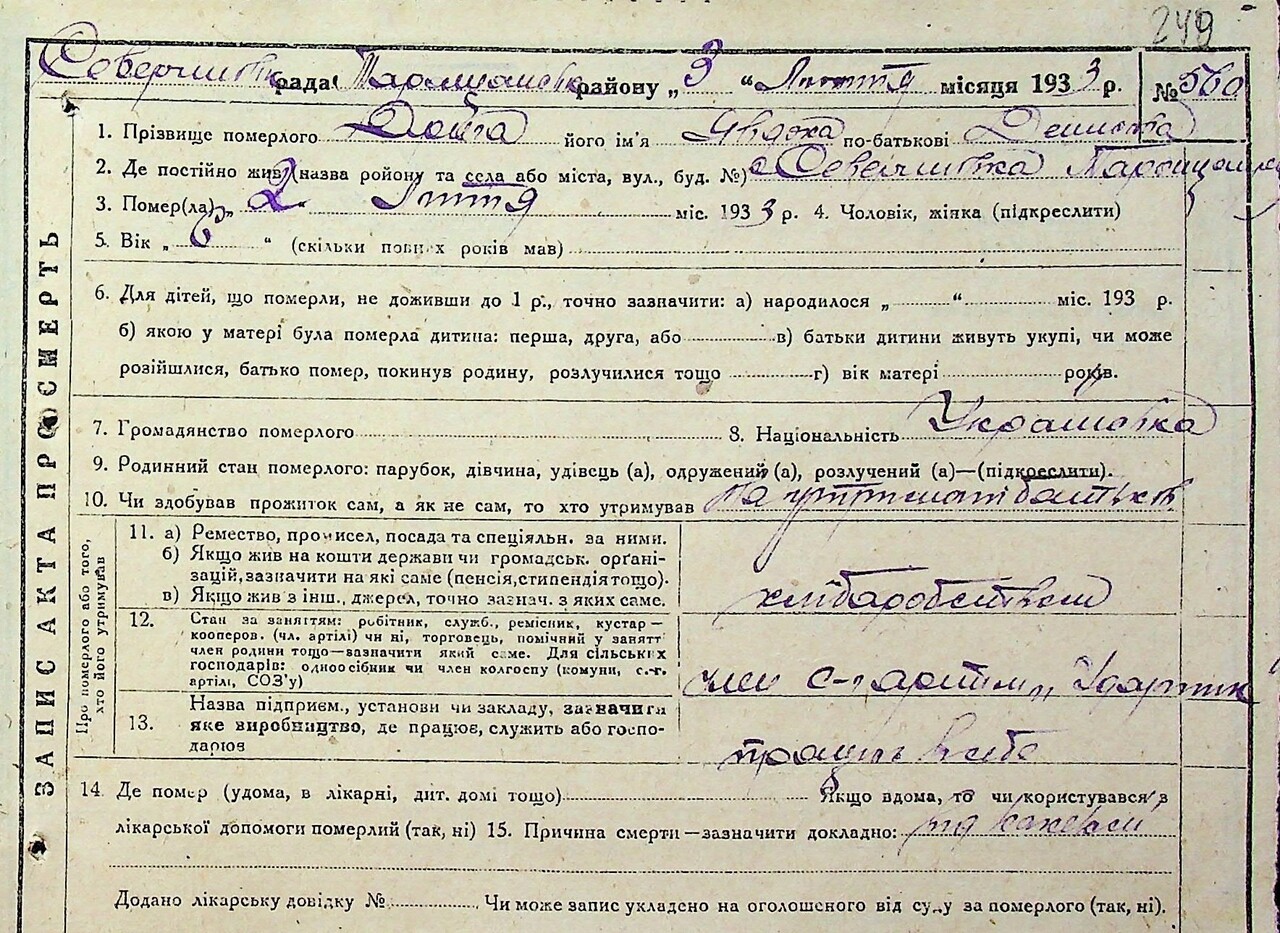 249
рада району „ 3 “ місяця 1933 р. № 560
1. Прізвище померлого його ім'я Явдоха по-батькові
2. Де постійно жив (назва ройону та села або міста, вул., буд. №)
3. Помер(ла) „ 2 міс. 1933 р. 4. Чоловік, жіяка (підкреслити)
5. Вік „ 6 “ (скільки повних років мав)
6. Для дітей, що померли, не доживши до 1 р., точно зазначити: а) народилося „ “ міс. 193 р.
б) якою у матері була померла дитина: перша, друга, або в) батьки дитини живуть укупі, чи може
розійшлися, батько помер, покинув родину, розлучилися тощо г) вік матері років.
7. Громадянство померлого 8. Національність Українка
9. Родинний стан померлого: парубок, дівчина, удівець (а), одружений (а), розлучений (а)—(підкреслити).
10. Чи здобував прожиток сам, а як не сам, то хто утримував на утриманні батьків
ЗАПИС АКТА ПРО СМЕРТЬ
Про померлого або того, хто його утримував
11. а) Ремество, промисел, посада та спеціяльн. за ними.
б) Якщо жив на кошти держави чи громадськ. орґані-
зацій, зазначити на які саме (пенсія, стипендія тощо).
в) Якщо жив з інш., джерел, точно зазнач. з яких саме.
хліборобством
12. Стан за заняттям: робітник, служб., ремісник, кустар—
кооперов. (чл. артілі) чи ні, торговець, помічний у занятт
член родини тощо—зазначити який саме. Для сільських
господарів: одноосібник чи член колгоспу (комуни, с.-г.
артілі, СОЗ'у)
член с-г артіли „Ударник“
13. Назва підприєм., установи чи закладу, зазначити
яке виробництво, де працює, служить або госпо-
дарює
14. Де помер (удома, в лікарні, дит. домі тощо) Якщо вдома, то чи користувався з
лікарської допомоги померлий (так, ні) 15. Причина смерти—зазначити докладно:
Додано лікарську довідку № Чи може запис укладено на оголошеного від суду за померлого (так, ні).